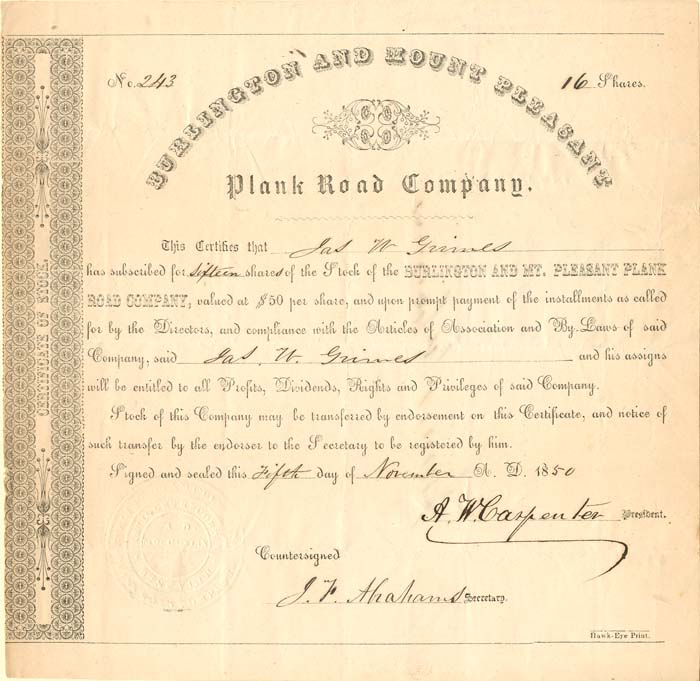 No. 243
16 Shares.
BURLINGTON AND MOUNT PLEASANT
Plank Road Company.
This Certifies that Jas W Grimes
has subscribed for sixteen shares of the Stock of the BURLINGTON AND MT. PLEASANT PLANK
ROAD COMPANY, valued at $50 per share, and upon prompt payment of the installments as called
for by the Directors, and compliance with the Articles of Association and By-Laws of said
Company, said Jas. W. Grimes and his assigns
will be entitled to all Profits, Dividends, Rights and Privileges of said Company.
Stock of this Company may be transferred by endorsement on this Certificate, and notice of
such transfer by the endorser to the Secretary to be registered by him.
Signed and sealed this Fifth day of November A. D. 1850
A. W. Carpenter President.
Countersigned
J. F. Abrahams Secretary.
Hawk-Eye Print.
CERTIFICATE OF STOCK.